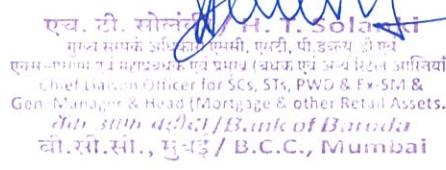 एच. टी. सोलंकी / H. T. Solanki
मुख्य संपर्क अधिकारी एससी, एसटी, पी.डब्ल्यू.डी एवं
एक्स-एसएम एवं महाप्रबंधक एवं प्रमुख (बंधक एवं अन्य रिटेल आस्तियाँ
Chief Liaison Officer for SCs, STs, PWD & Ex-SM &
Gen. Manager & Head (Mortgage & other Retail Assets.
बैंक ऑफ बड़ौदा / Bank of Baroda
बी.सी.सी., मुंबई / B.C.C., Mumbai